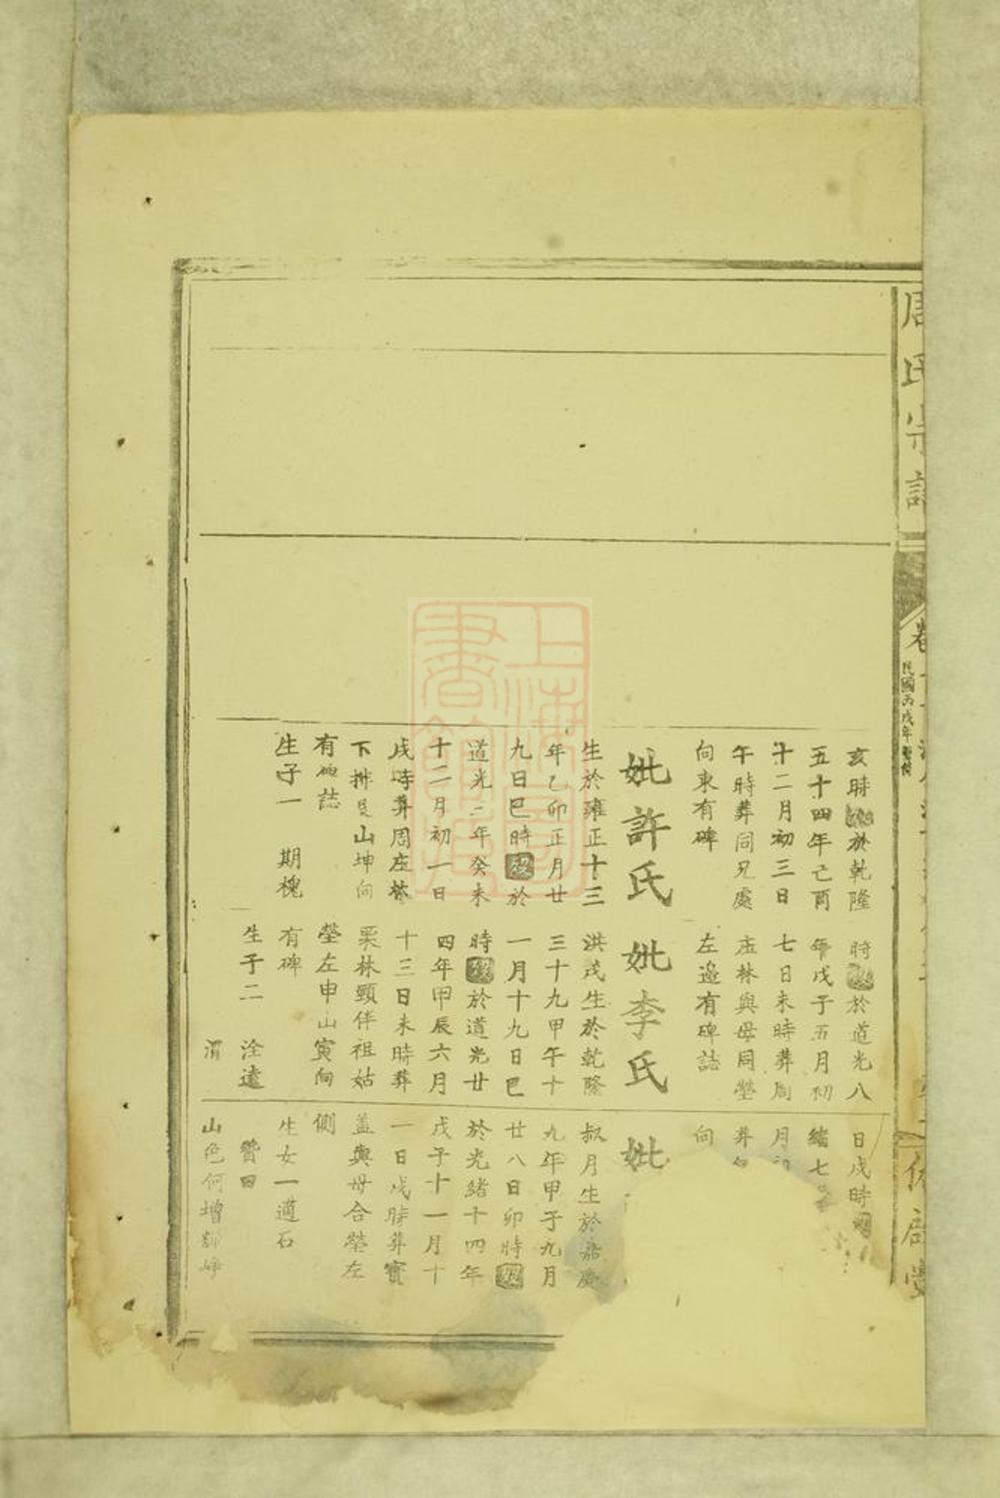 周氏宗譜
民國丙戌年
亥時歿於乾隆
五十四年己酉
十二月初三日
午時葬同兄處
向東有碑
妣許氏
生於雍正十三
年乙卯正月廿
九日巳時歿於
道光三年癸未
十二月初一日
戌時葬周庄林
下排艮山坤向
有碑誌
生子一 期槐
時歿於道光八
年戊子五月初
七日未時葬周
庄林與母同塋
左邊有碑誌
妣李氏
洪茂生於乾隆
三十九甲午十
一月十九日巳
時歿於道光廿
四年甲辰六月
十三日未時葬
栗林頸伴祖姑
塋左申山寅向
有碑
生子二 洤遠
渭
日戌時
緒七
月初
葬
向
妣
叔月生於嘉慶
九年甲子九月
廿八日卯時歿
於光緒十四年
戊子十一月十
一日戌時葬寶
蓋與母合塋左
側
生女一適石
贊田
山色何增
上海圖書館藏